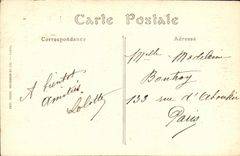 Carte Postale
Correspondance
Adresse
Melle Madeleine
A bientôt
amitiés
Lolotte
133 rue d'Aboukir
Paris